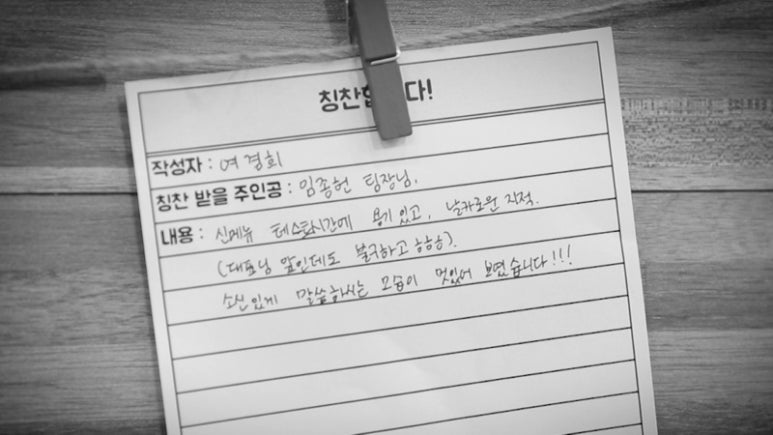 칭찬합니다!
작성자 : 여경희
칭찬 받을 주인공 : 임종헌 팀장님.
내용 : 신메뉴 테스팅시간에 용기있고, 날카로운 지적.
(대표님 앞인데도 불구하고 ㅎㅎㅎ).
소신있게 말씀하시는 모습이 멋있어 보였습니다!!!